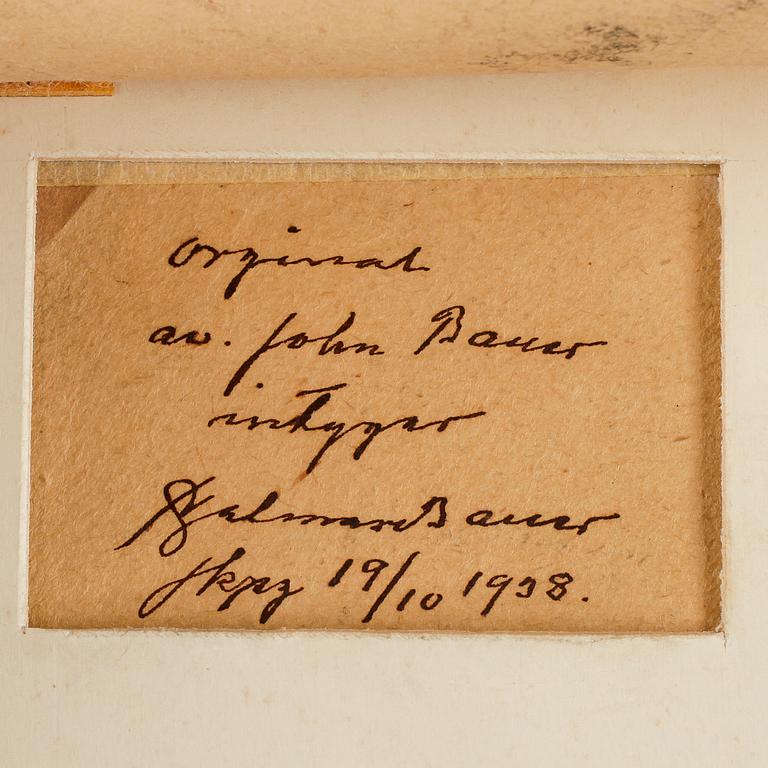 orginal
av. John Bauer
intygar
Hjalmar Bauer
Jkpg 19/10 1938.